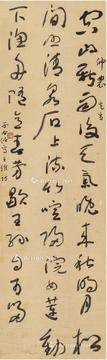 空山新雨後天氣晚來秋明月松
間照清泉石上流竹喧歸浣女蓮動
下漁舟隨意春芳歇王孫自可留